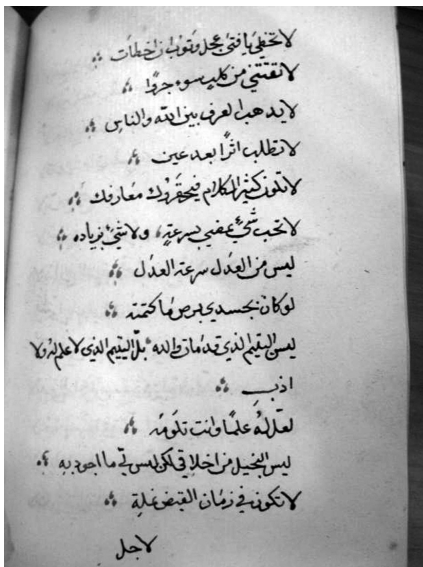 لا تخطي يا فتى عجل وتوب ان اخطات
لا تقتني من كلب سوء جروًا
لا يذهب العرف بين الله والناس
لا تطلب اثرًا بعد عين
لا تكون كثير الكلام فيحقروك معارفك
لا تحب شيٌ عفي بسرعةٍ، ولا شيٌ بزياده
ليس من العدل سرعة العدل
لو كان بجسدي برص ما كتمته
ليس اليتيم الذي قد مات والده بل اليتيم الذي لا علم له ولا
ادب
لعل له علمًا وانت تلومه
ليس البخيل من اخلاقي لكن ليس في ما اجود به
لا تكون في زمان القبض غلة
لاجل